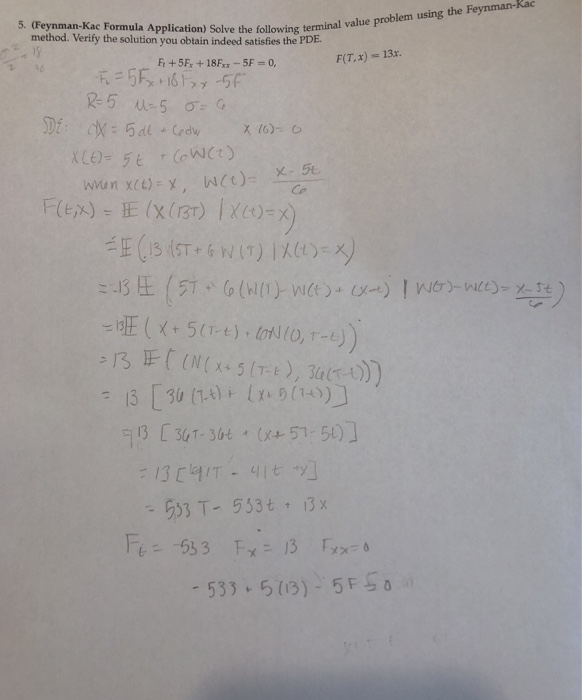 5. (Feynman-Kac Formula Application) Solve the following terminal value problem using the Feynman-Kac
method. Verify the solution you obtain indeed satisfies the PDE.
F_t + 5F_x + 18F_xx − 5F = 0, F(T, x) = 13x.
F_t = 5F_x + 18F_xx - 5F
R=5 μ=5 σ=6
SDE: dX = 5dt + 6dw X(0)=0
X(t)= 5t + 6W(t)
when x(t)=x, W(t)= x-5t / 6
F(t,x) = E(X(13T) | X(t)=x)
= E(13(5T+6W(T) | X(t)=x)
= 13 E (5T + 6(W(T)-W(t)+(x-t) | W(T)-W(t)= x-5t / 6)
= 13E (x+5(T-t)+6N(0,T-t))
= 13 E((N(x+5(T-t), 36(T-t)))
= 13 [36(T-t)+(x+5(T-t))]
13 [36T-36t + (x+5T-5t)]
= 13 [41T - 41t + x]
= 533T - 533t + 13x
F_t = -533 F_x = 13 F_xx=0
- 533 + 5(13) - 5F 0